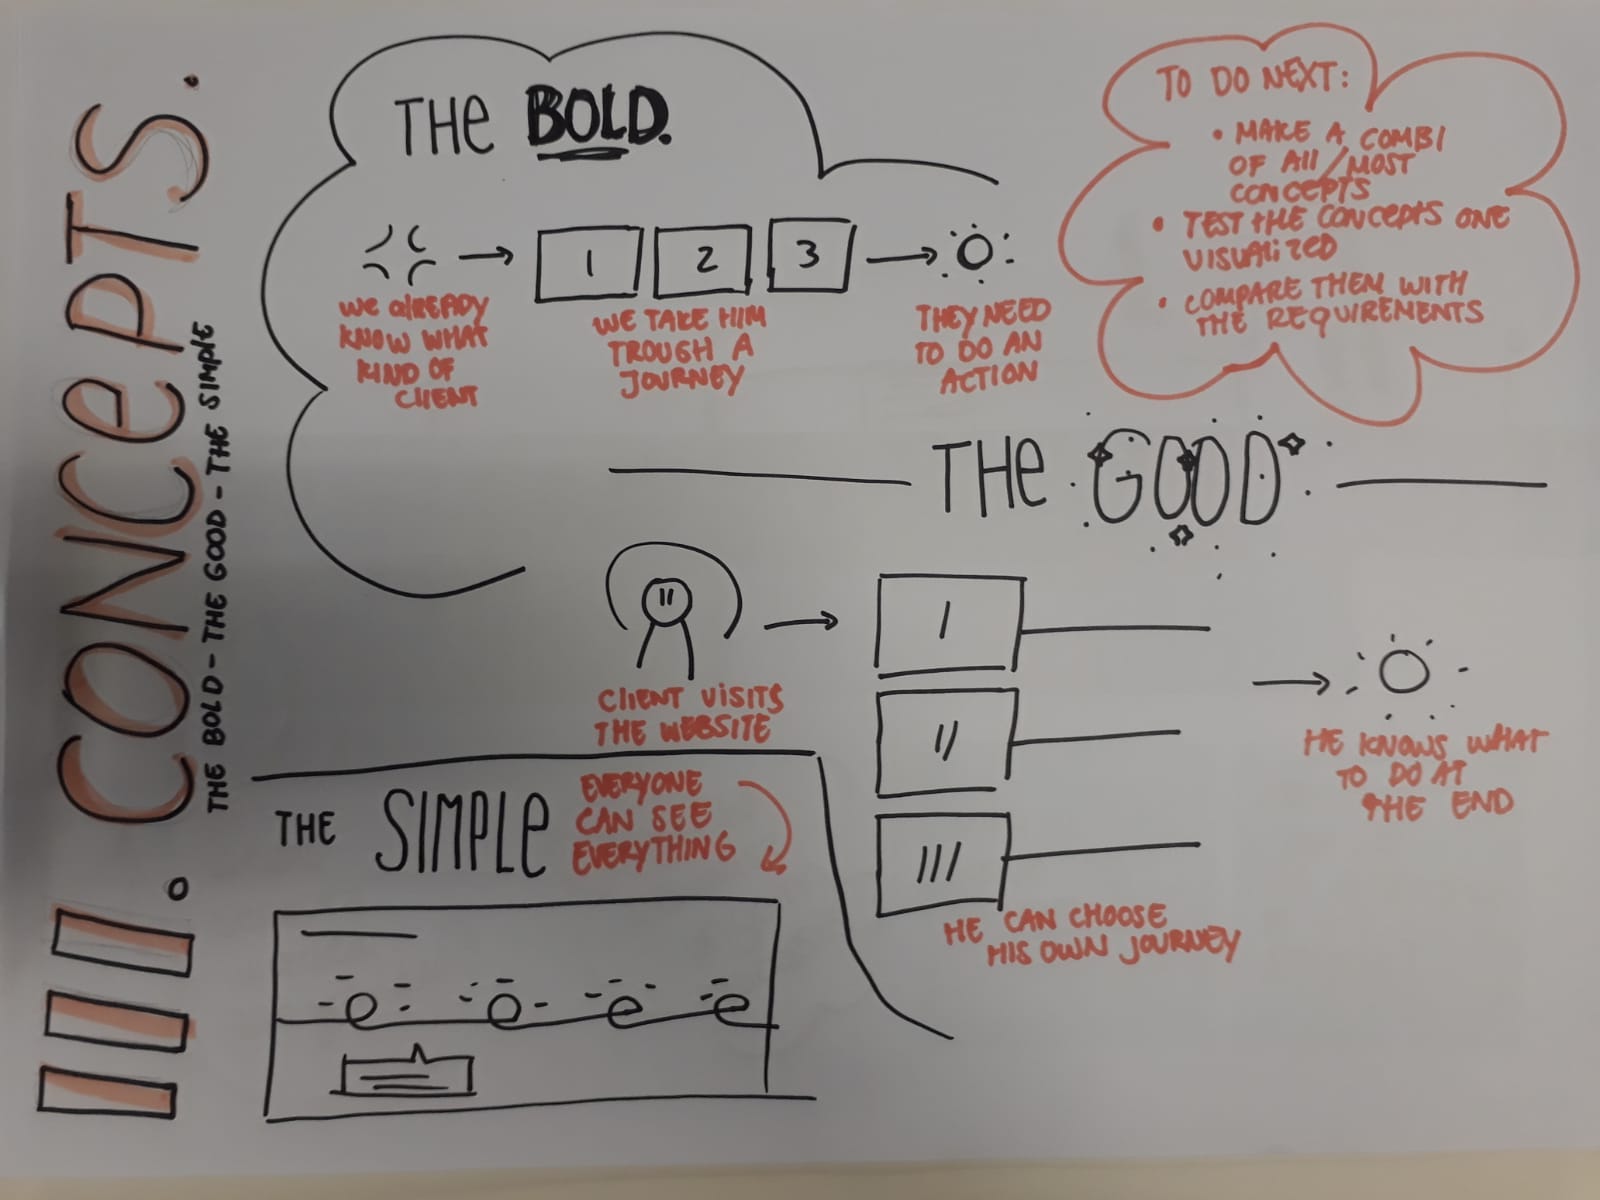 III. CONCEPTS.
THE BOLD - THE GOOD - THE SIMPLE
THE BOLD.
1 2 3
WE ALREADY
KNOW WHAT
KIND OF
CLIENT
WE TAKE HIM
TROUGH A
JOURNEY
THEY NEED
TO DO AN
ACTION
TO DO NEXT:
• MAKE A COMBI
OF All/MOST
CONCEPTS
• TEST THE CONCEPTS ONE
VISUALIZED
• COMPARE THEM WITH
THE REQUIREMENTS
THE GOOD
CLIENT VISITS
THE WEBSITE
I
II
III
HE CAN CHOOSE
HIS OWN JOURNEY
HE KNOWS WHAT
TO DO AT
THE END
THE SIMPLE
EVERYONE
CAN SEE
EVERYTHING